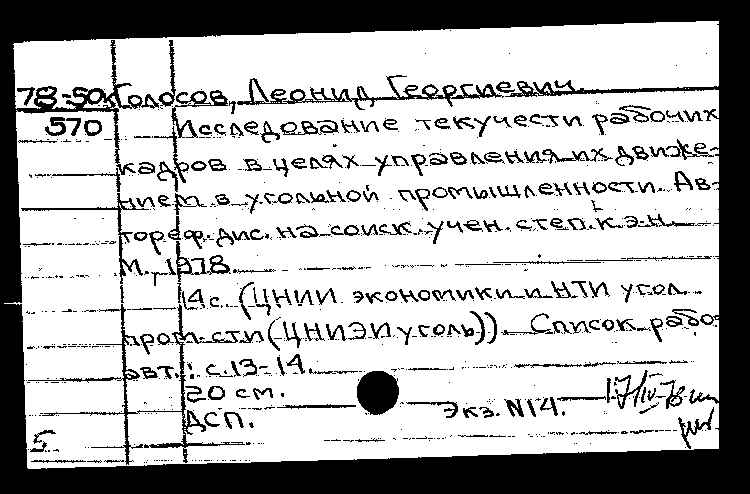 78-50к Голосов, Леонид Георгиевич.
570 Исследование текучести рабочих
кадров в целях управления их движе-
нием в угольной промышленности. Ав-
тореф. дис. на соиск. учен. степ. к.э.н.
М., 1978.
14 с. (ЦНИИ экономики и НТИ угол.
пром-сти (ЦНИЭИуголь)). Список рабо-
авт.: с. 13-14.
20 см.
Экз. N14. 17/IV-78
ДСП.
5